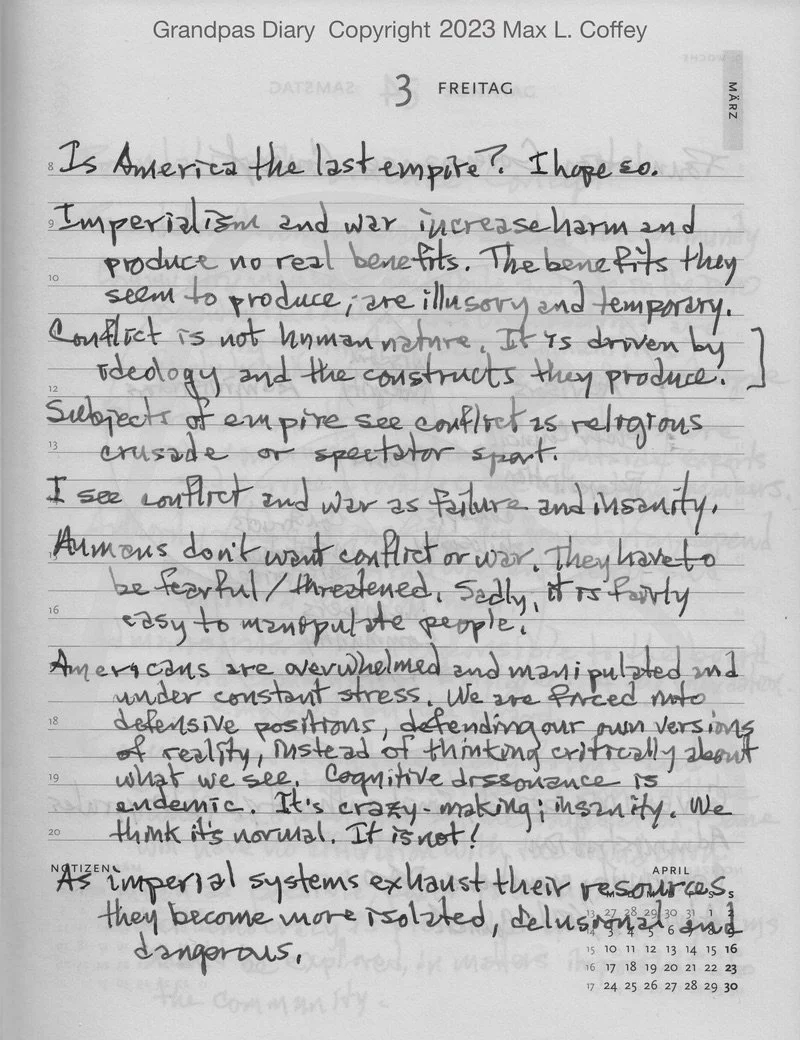 Grandpas Diary Copyright 2023 Max L. Coffey
3 FREITAG
MÄRZ
8 Is America the last empire? I hope so.
9 Imperialism and war increase harm and
produce no real benefits. The benefits they
10
seem to produce, are illusory and temporary.
Conflict is not human nature. It is driven by ]
ideology and the constructs they produce.
12
Subjects of empire see conflict as religious
13
crusade or spectator sport.
I see conflict and war as failure and insanity.
Humans don't want conflict or war. They have to
be fearful / threatened. Sadly, it is fairly
16
easy to manipulate people.
Americans are overwhelmed and manipulated and
under constant stress. We are forced into
18 defensive positions, defending our own versions
of reality, instead of thinking critically about
19 what we see. Cognitive dissonance is
endemic. It's crazy-making; insanity. We
20 think it's normal. It is not!
NOTIZEN
APRIL
As imperial systems exhaust their resources
they become more isolated, delusional and
dangerous.
13 27 28 29 30 31 1 2
15 10 11 12 13 14 15 16
16 17 18 19 20 21 22 23
17 24 25 26 27 28 29 30